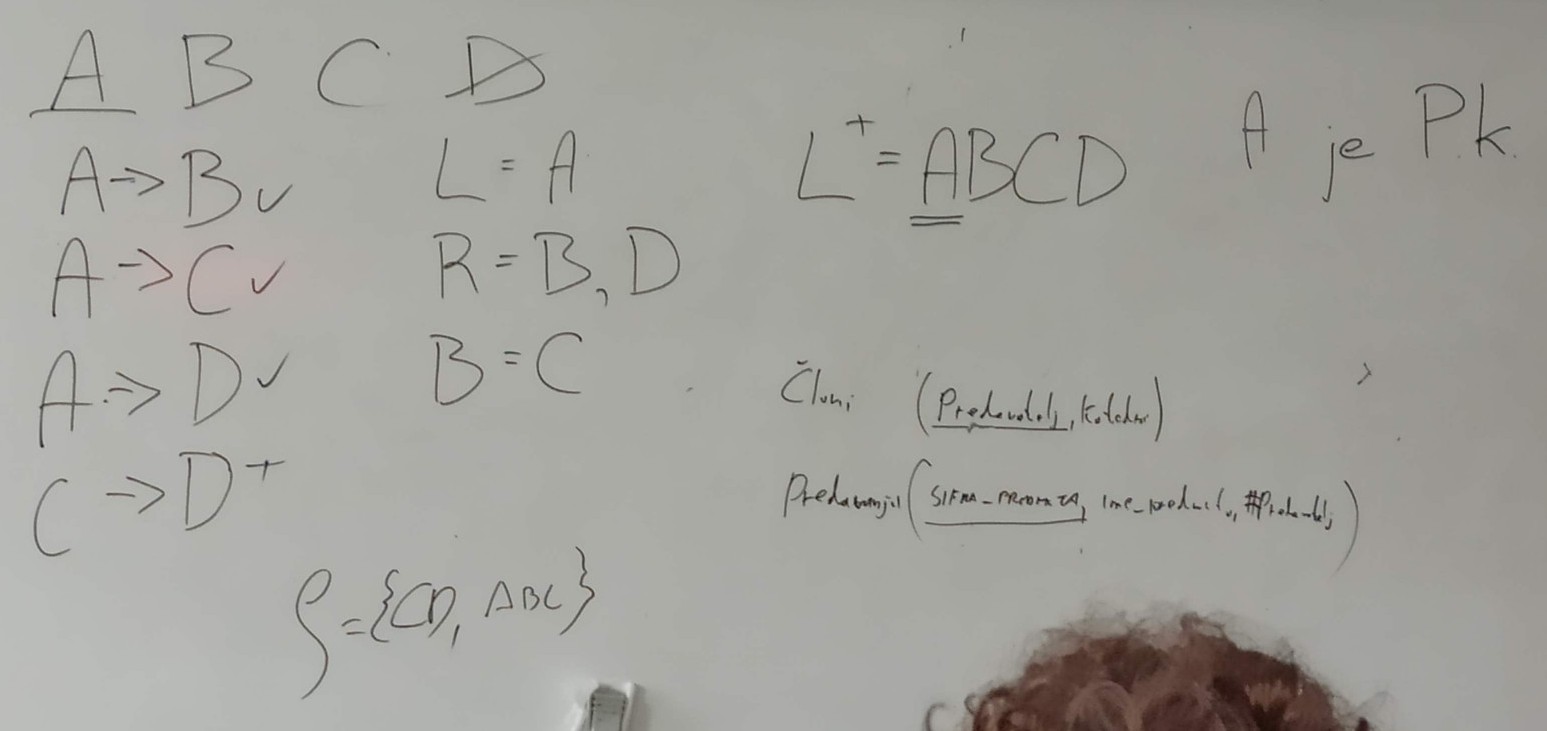 A B C D
A -> B ✓
A -> C ✓
A -> D ✓
C -> D +
L = A
R = B, D
B = C
ρ = {CD, ABC}
L⁺ = ABCD
A je P.k.
Člani (Predavatelj, )
Predavanja (SIFRA_PREDMETA, ime_predmeta, #Predavatelj)